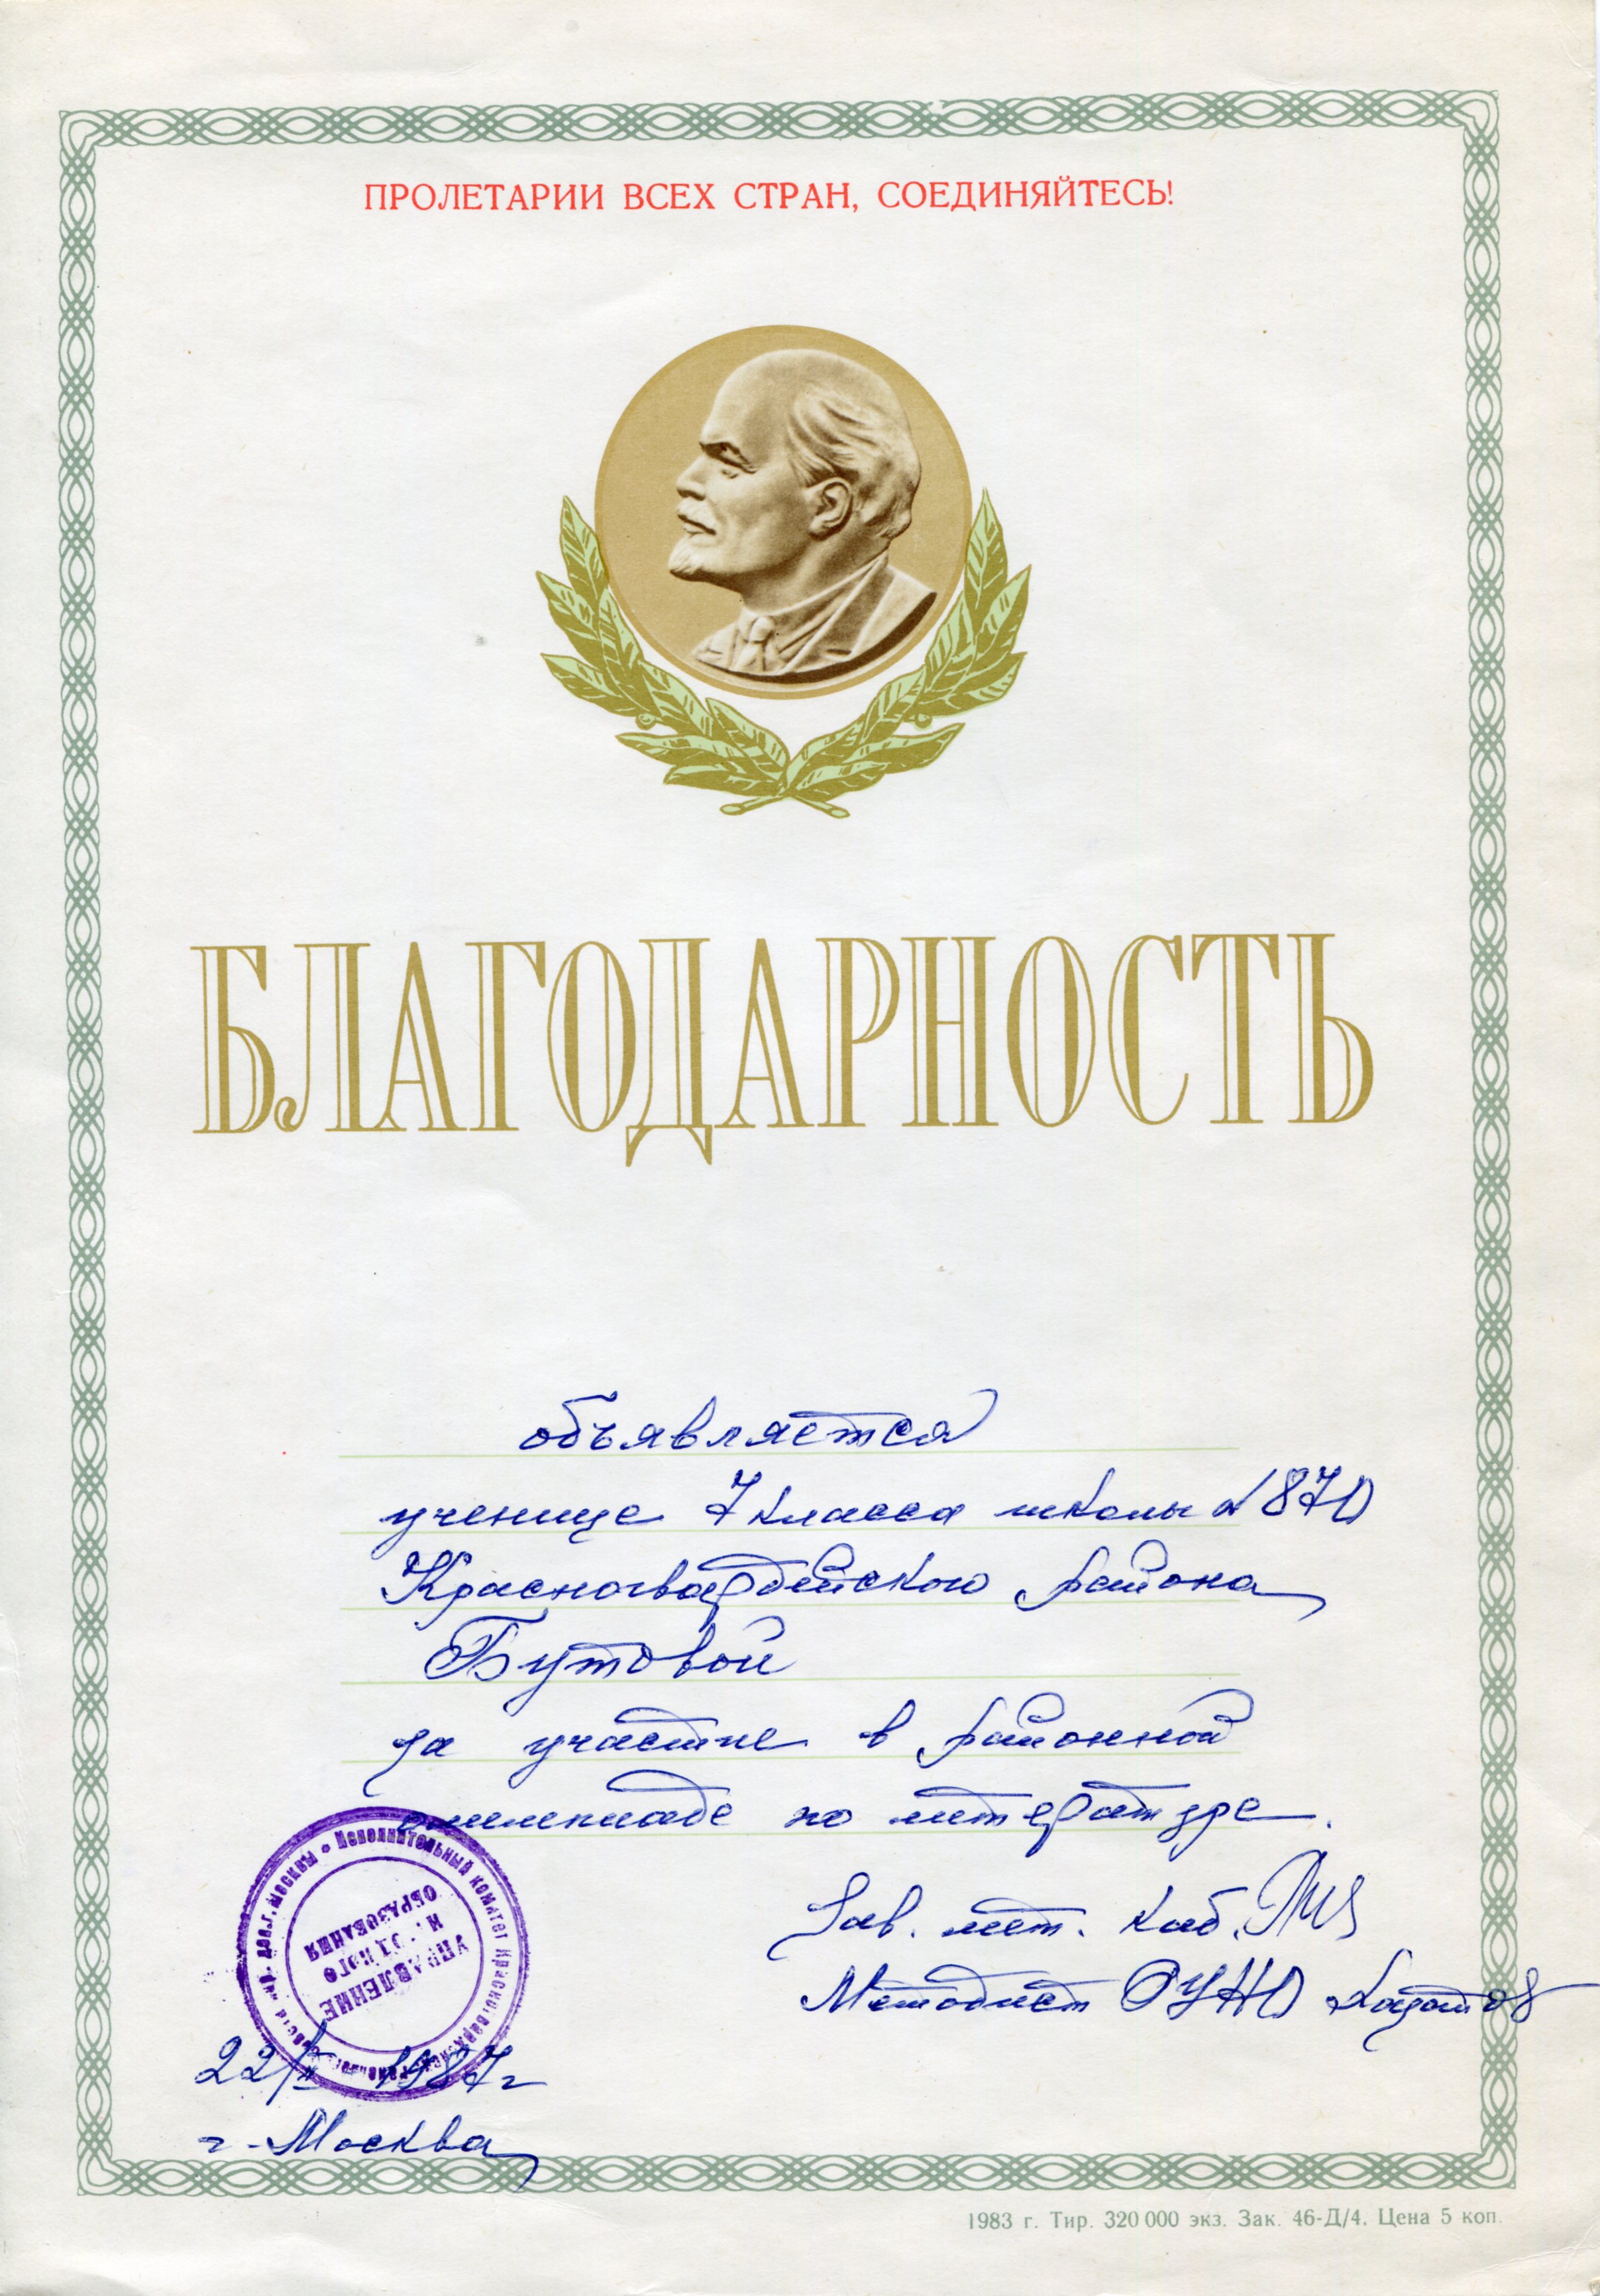 ПРОЛЕТАРИИ ВСЕХ СТРАН, СОЕДИНЯЙТЕСЬ!
БЛАГОДАРНОСТЬ
объявляется
ученице 7 класса школы № 870
Красногвардейского района
Бутовой
за участие в районной
олимпиаде по литературе.
Зав. мет. каб.
Методист РУНО
Исполнительный комитет Красногвардейского
г. Москвы
УПРАВЛЕНИЕ
НАРОДНОГО
ОБРАЗОВАНИЯ
1987 г
г. Москва
1983 г. Тир. 320 000 экз. Зак. 46-Д/4. Цена 5 коп.